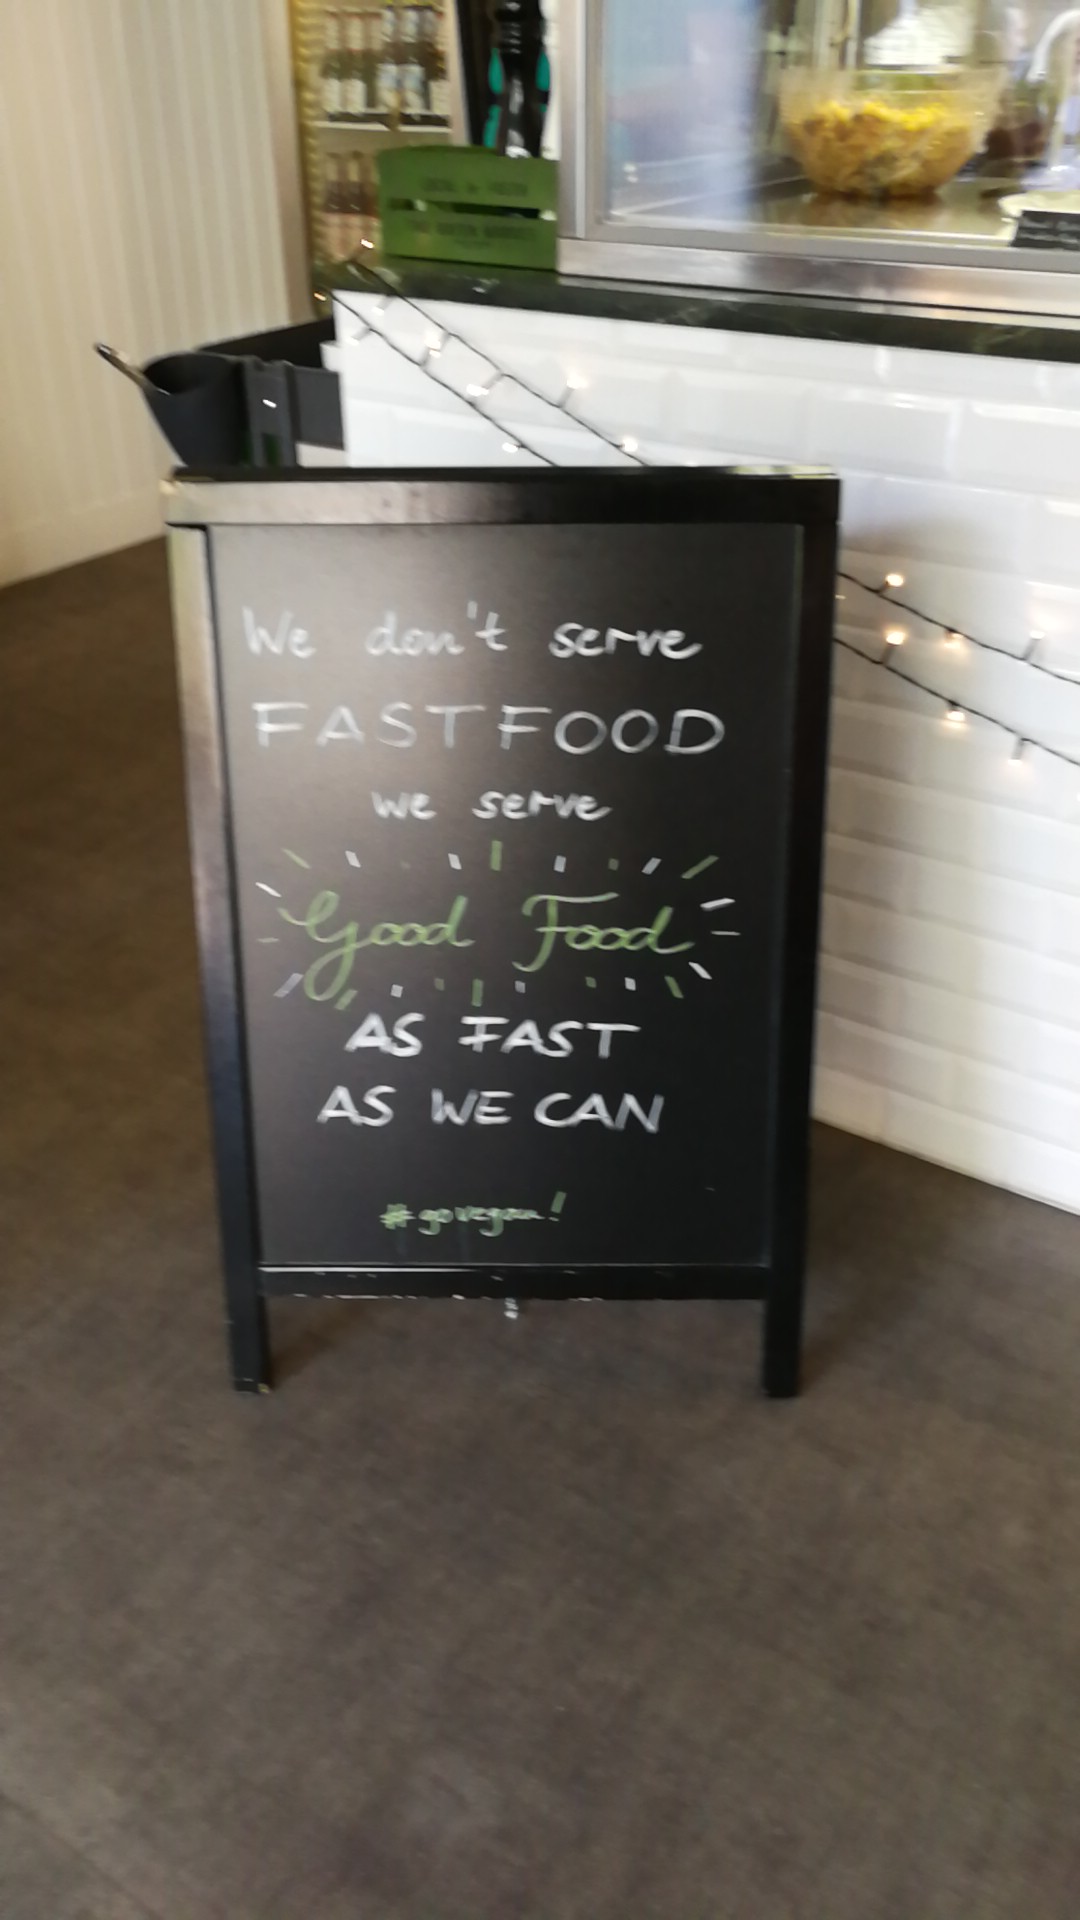 We don't serve
FAST FOOD
we serve
Good Food
AS FAST
AS WE CAN
#govegan!